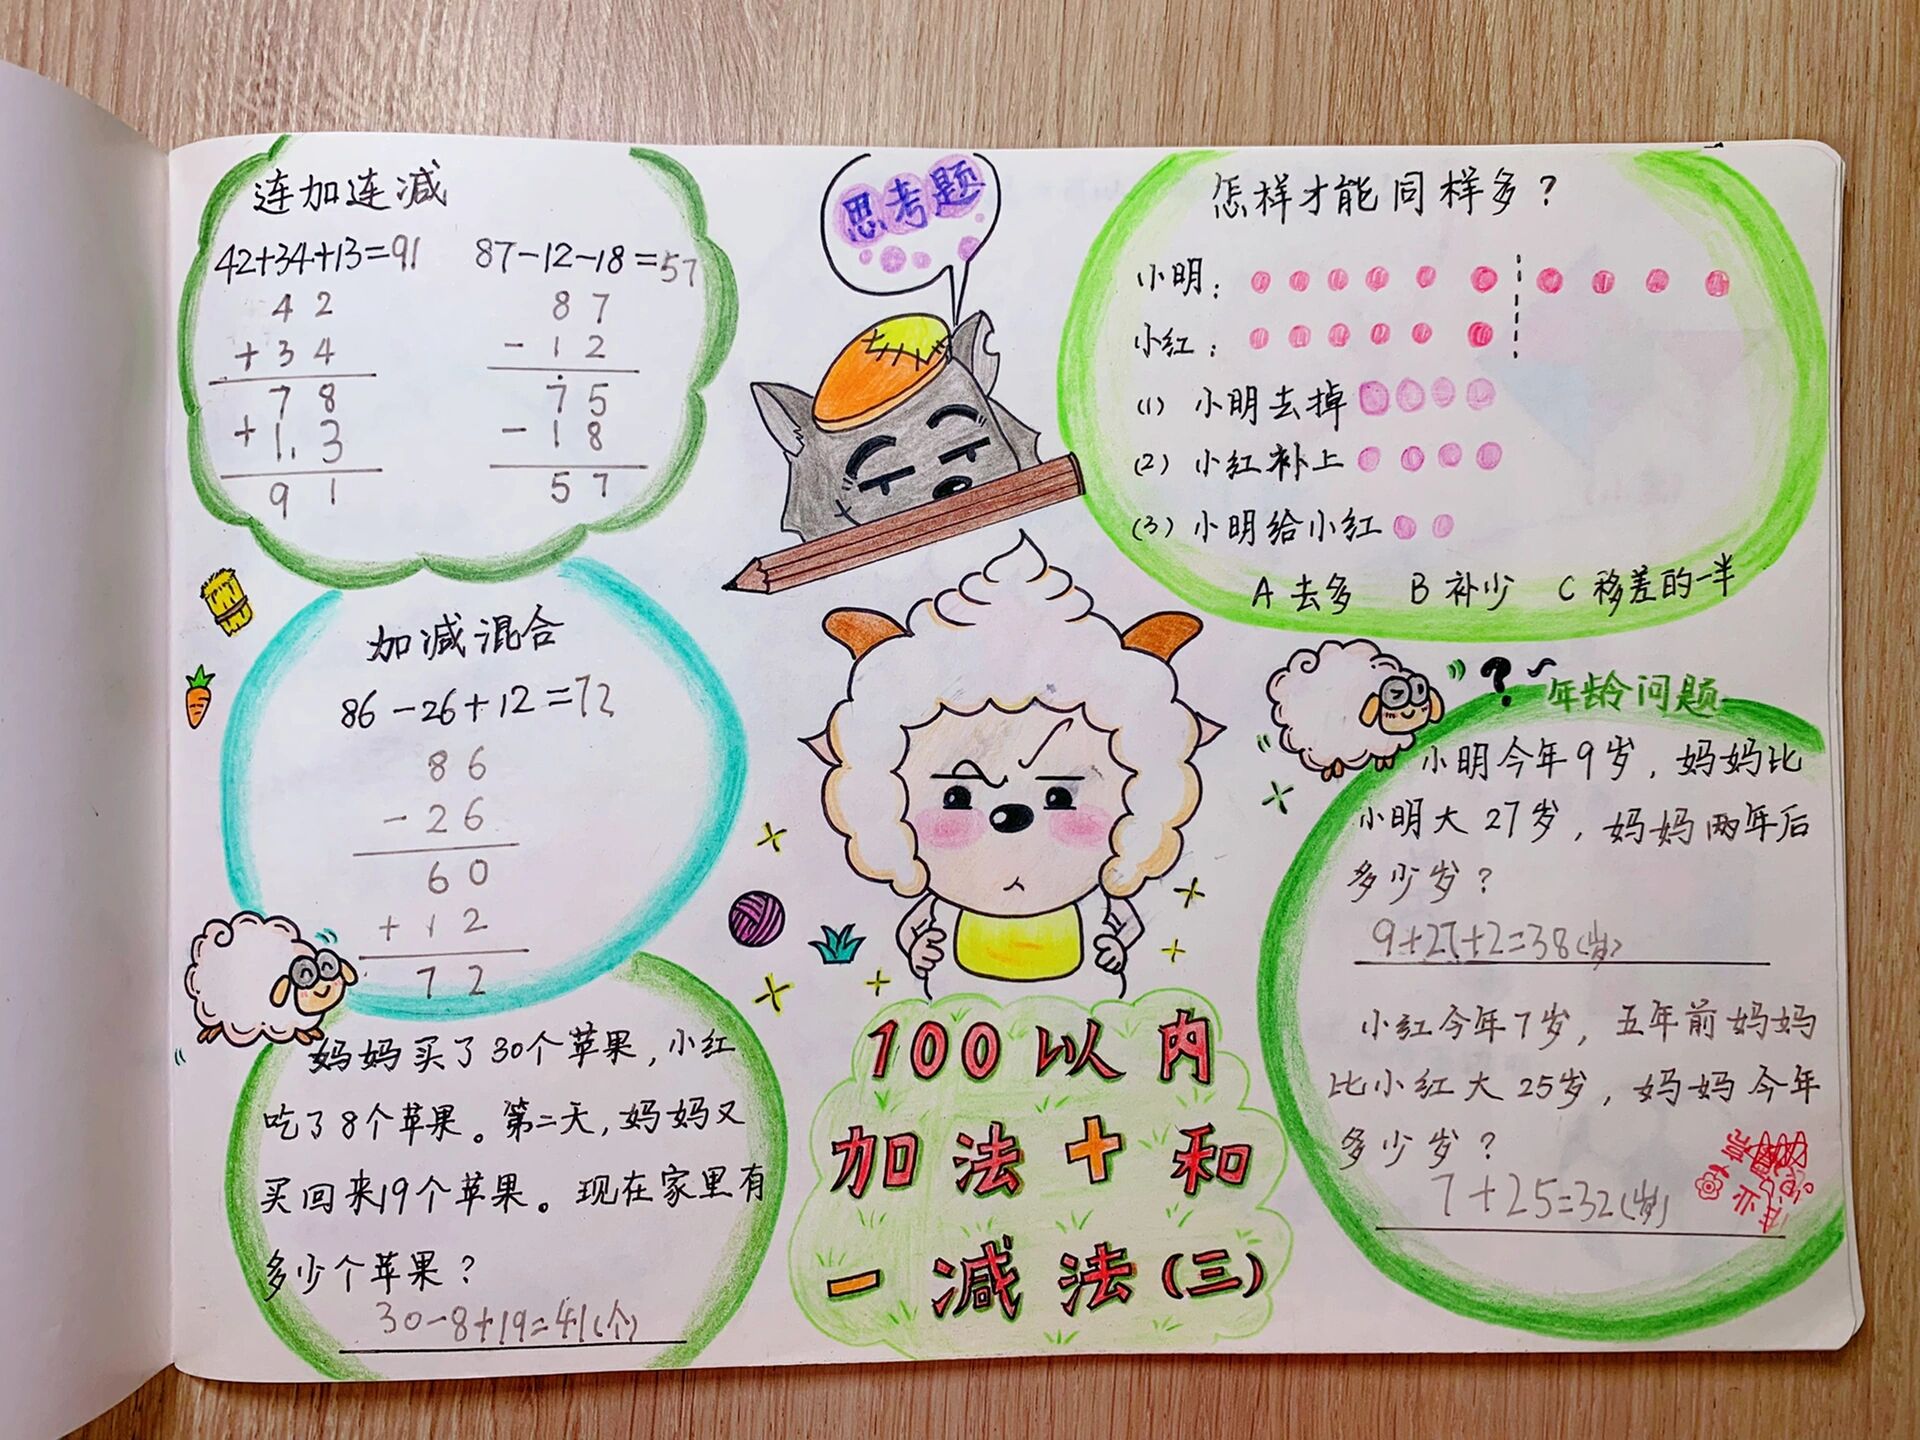 连加连减
42+34+13=91
4 2
+ 3 4
7 8
+ 1. 3
9 1
87-12-18=57
8 7
- 1 2
7 5
- 1 8
5 7
思考题
怎样才能同样多？
小明：
小红：
(1) 小明去掉
(2) 小红补上
(3) 小明给小红
A 去多 B 补少 C 移差的一半
加减混合
86-26+12=72
8 6
- 2 6
6 0
+ 1 2
7 2
妈妈买了30个苹果，小红
吃了8个苹果。第二天，妈妈又
买回来19个苹果。现在家里有
多少个苹果？
30-8+19=41(个)
100以内
加法+和
-减法(三)
?
年龄问题
小明今年9岁，妈妈比
小明大27岁，妈妈两年后
多少岁？
9+27+2=38(岁)
小红今年7岁，五年前妈妈
比小红大25岁，妈妈今年
多少岁？
7+25=32(岁)